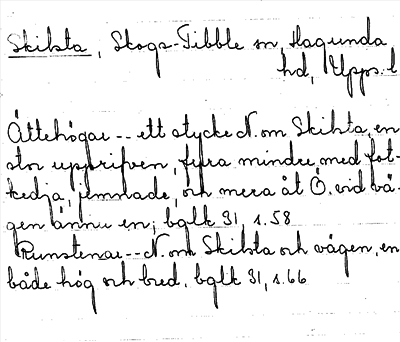 Skilsta, Skogs-Tibble sn, Hagunda
hd, Upps. l
Ättehögar -- ett stycke N. om Skilsta, en
stor uppriven, fyra mindre med fot-
kedja, jemnade, och mera åt Ö. vid vä-
gen ännu en; bglk 31 s. 58
Runstenar -- N. om Skilsta och vägen, en
både hög och bred. bglk 31, s. 66